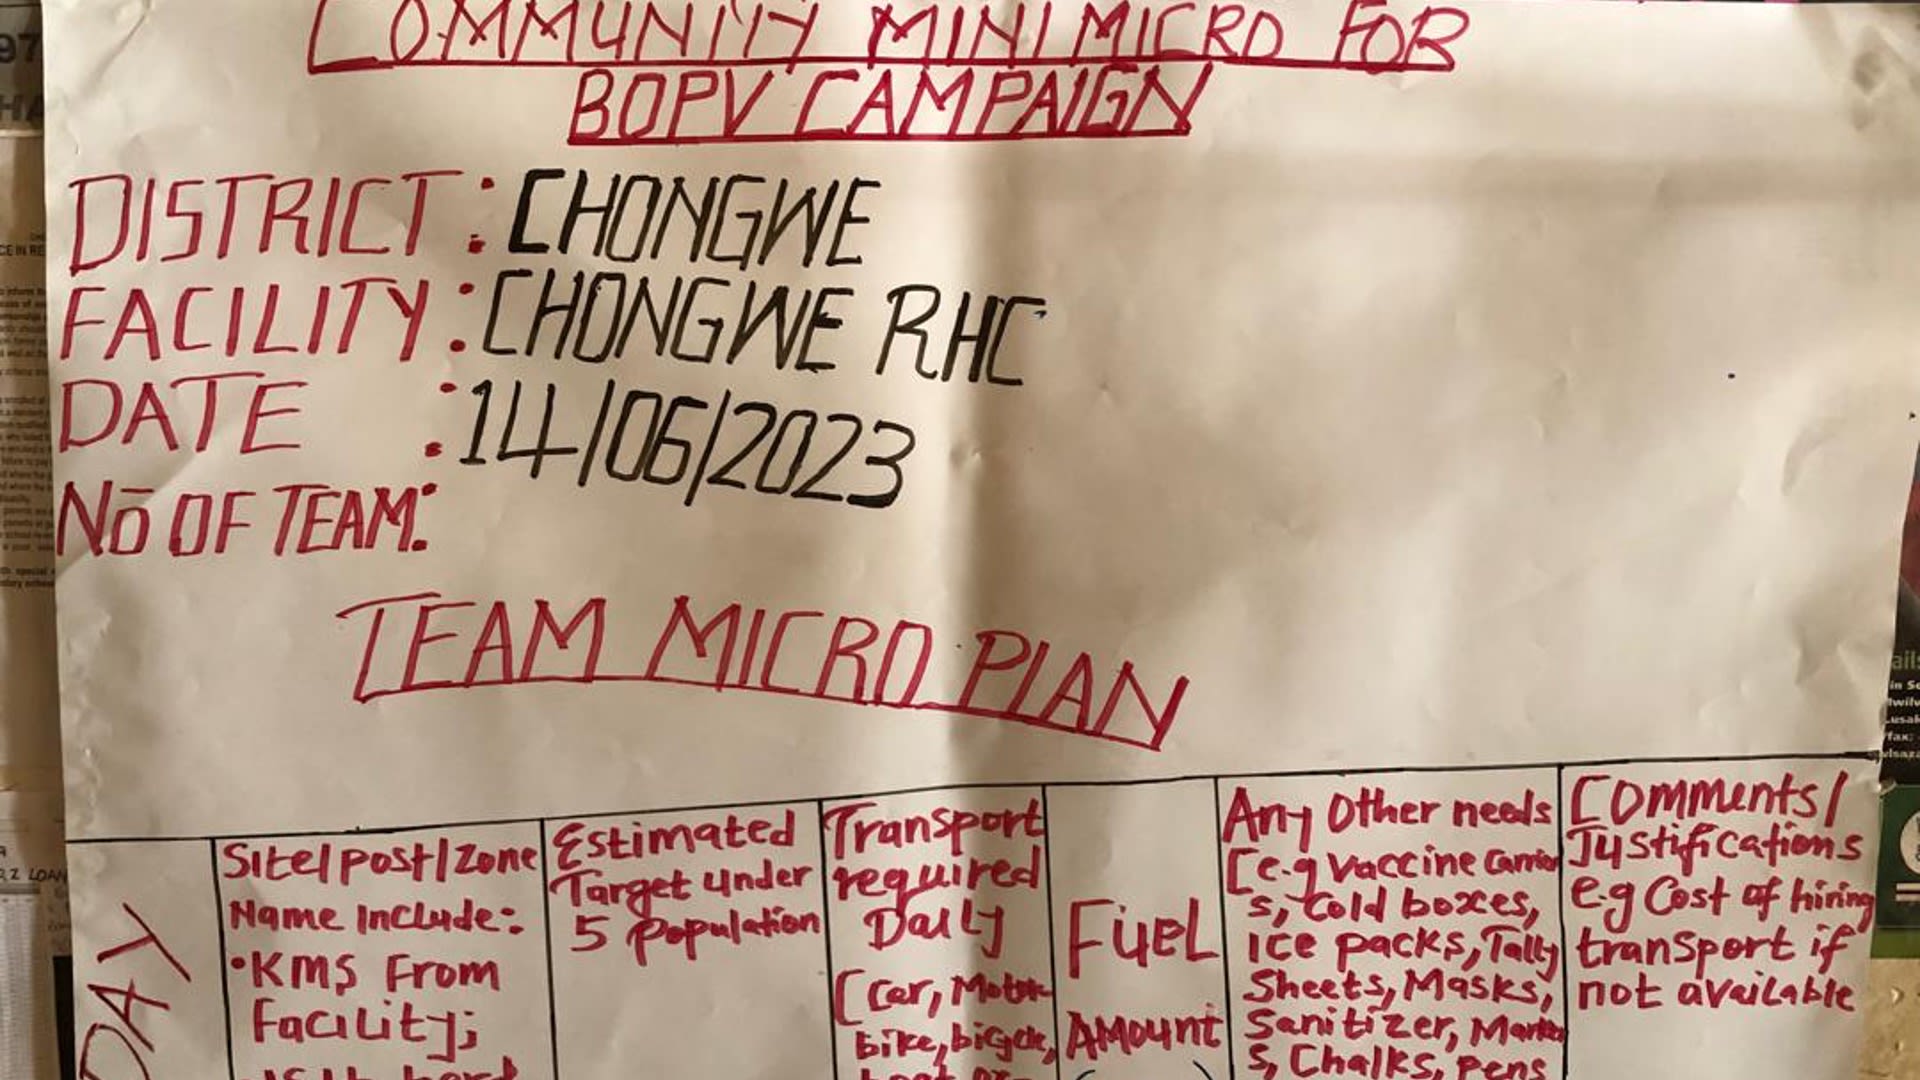 COMMUNITY MINI MICRO FOR
BOPV CAMPAIGN
DISTRICT : CHONGWE
FACILITY : CHONGWE RHC
DATE : 14/06/2023
No OF TEAM:
TEAM MICRO PLAN
DAY
Site/post/zone
Name Include:
•KMS From
Facility;
Estimated
Target under
5 Population
Transport
required
Daily
(Car, Motor
bike, bicycle,
Fuel
AMOUNT
Any Other needs
(e.g vaccine Carrier
s, Cold boxes,
Ice packs, Tally
Sheets, Masks,
Sanitizer, Marker
s, Chalks, pens
Comments/
Justifications
e.g Cost of hiring
transport if
not available